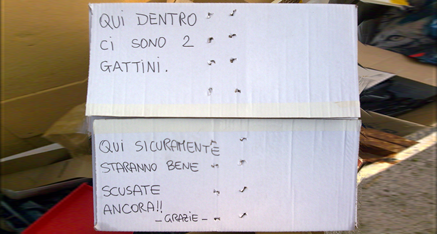 QUI DENTRO
Ci SONO 2
GATTINI.
QUI SICURAMENTE
STARANNO BENE
SCUSATE
ANCORA!!
- GRAZIE -